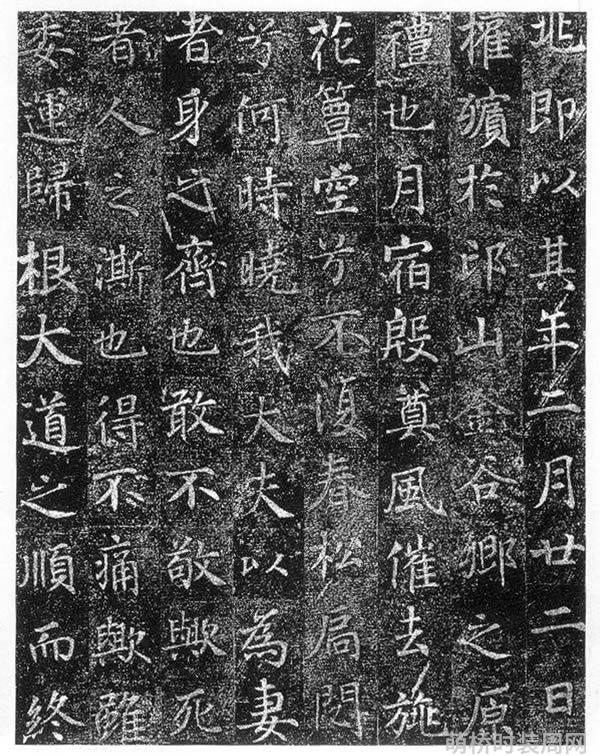 兆即以其年二月廿二日
權殯於邙山金谷鄉之原
禮也月宿殷奠風催去旐
花簟空兮不復春松扃閇
兮何時曉我大夫以為妻
者身之齊也敢不敬歟死
者人之澌也得不痛歟雖
委運歸根大道之順而終
萌桥时装周网